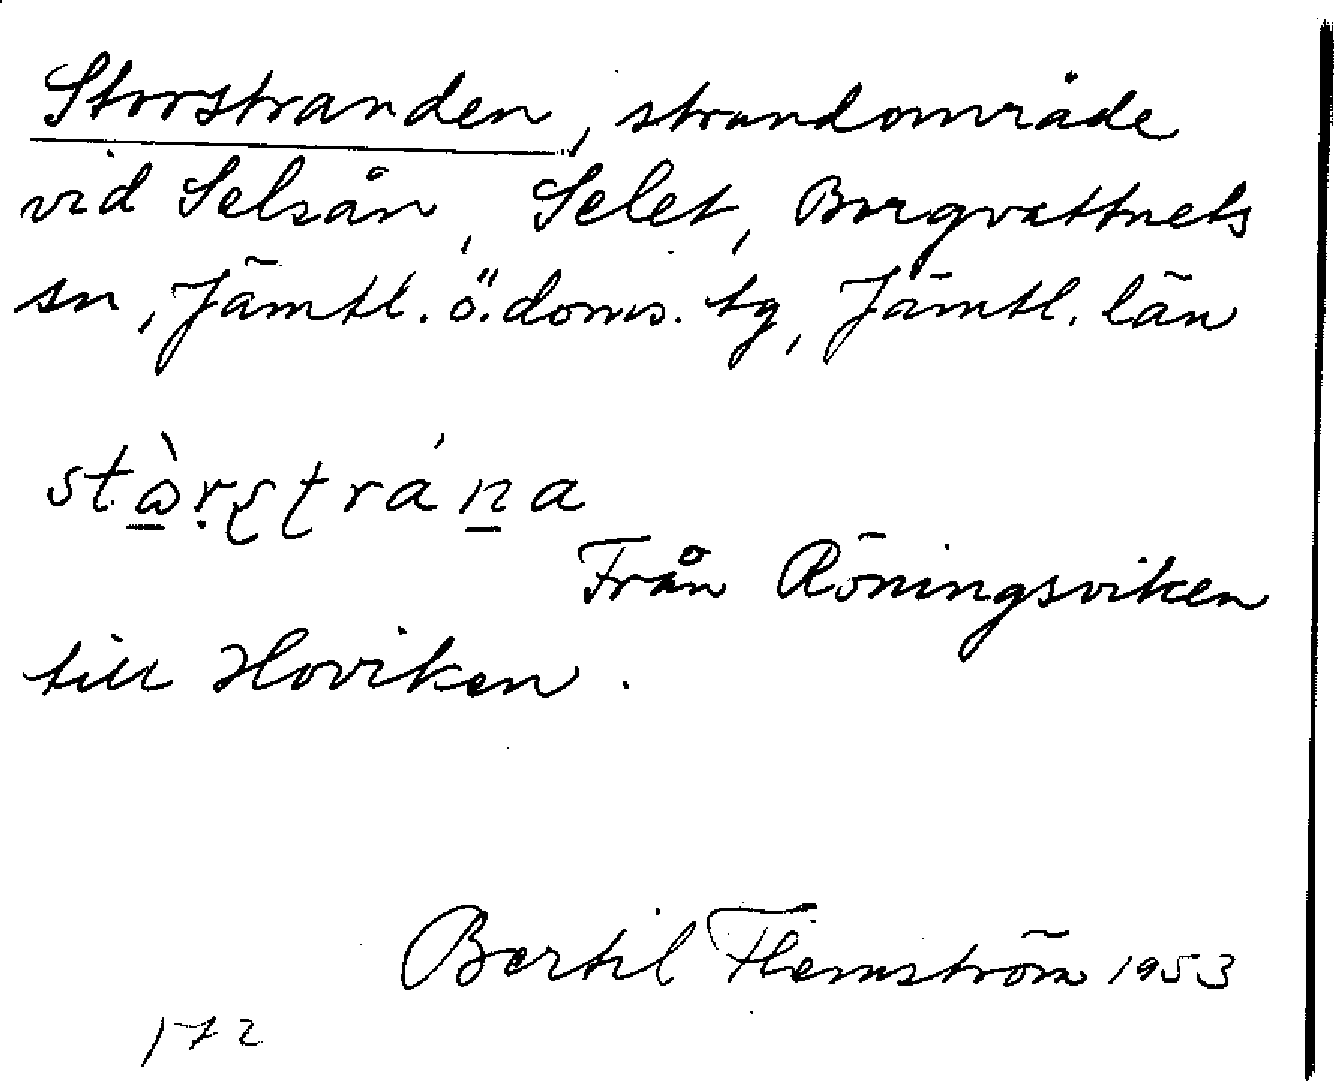 Storstranden, strandområde
vid Selsån, Selet, Borgvattnets
sn, Jämtl. ö. doms. tg, Jämtl. län
Från Röningsviken
till Hoviken.
Bertil Flemström 1953
172